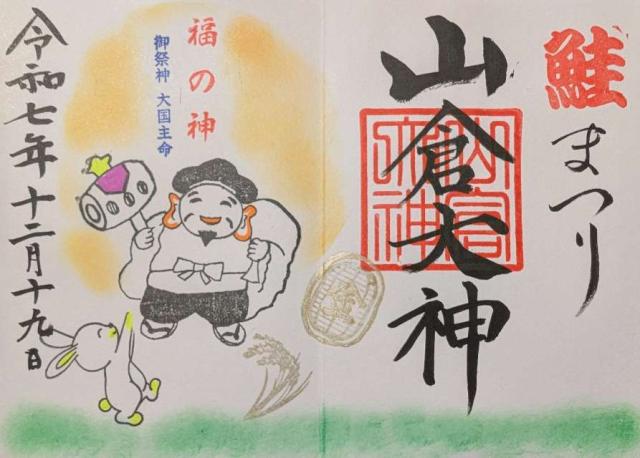 鮭まつり
山倉大神
福の神
御祭神 大国主命
令和七年十二月十九日
金